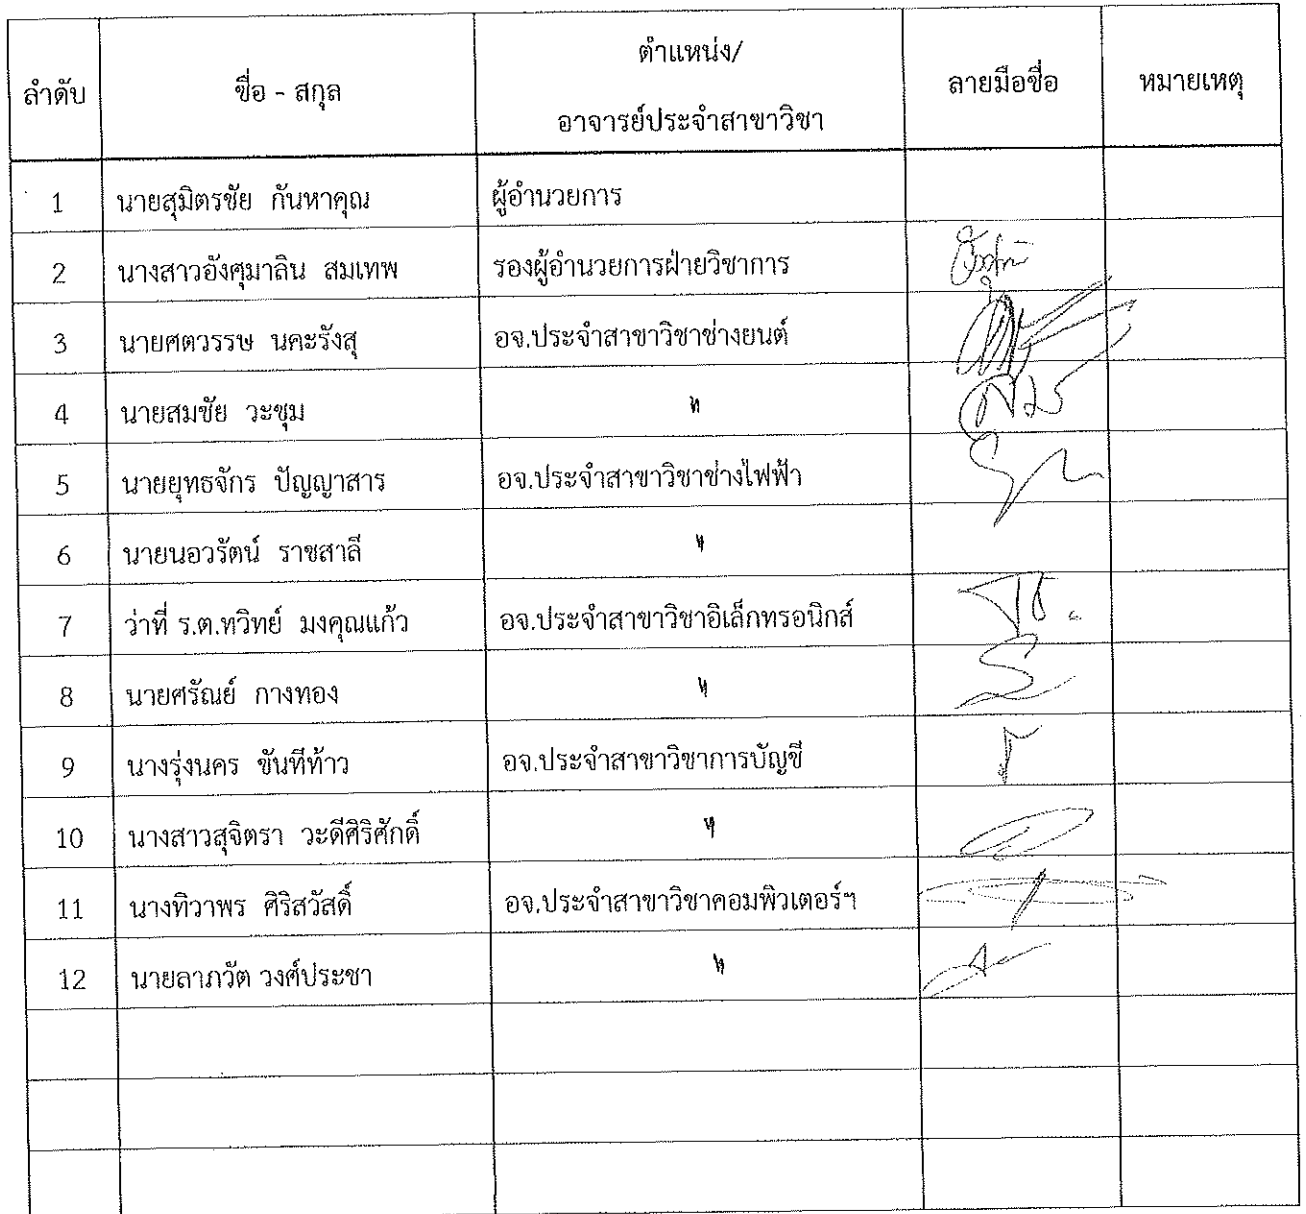 ลำดับ ชื่อ - สกุล ตำแหน่ง/ ลายมือชื่อ หมายเหตุ
อาจารย์ประจำสาขาวิชา
1 นายสุมิตรชัย กันหาคุณ ผู้อำนวยการ
2 นางสาวอังศุมาลิน สมเทพ รองผู้อำนวยการฝ่ายวิชาการ
3 นายศตวรรษ นคะรังสุ อจ.ประจำสาขาวิชาช่างยนต์
4 นายสมชัย วะชุม "
5 นายยุทธจักร ปัญญาสาร อจ.ประจำสาขาวิชาช่างไฟฟ้า
6 นายนอวรัตน์ ราชสาลี "
7 ว่าที่ ร.ต.ทวิทย์ มงคุณแก้ว อจ.ประจำสาขาวิชาอิเล็กทรอนิกส์
8 นายศรัณย์ กางทอง "
9 นางรุ่งนคร ขันทีท้าว อจ.ประจำสาขาวิชาการบัญชี
10 นางสาวสุจิตรา วะดีศิริศักดิ์ "
11 นางทิวาพร ศิริสวัสดิ์ อจ.ประจำสาขาวิชาคอมพิวเตอร์ฯ
12 นายลาภวัต วงศ์ประชา "